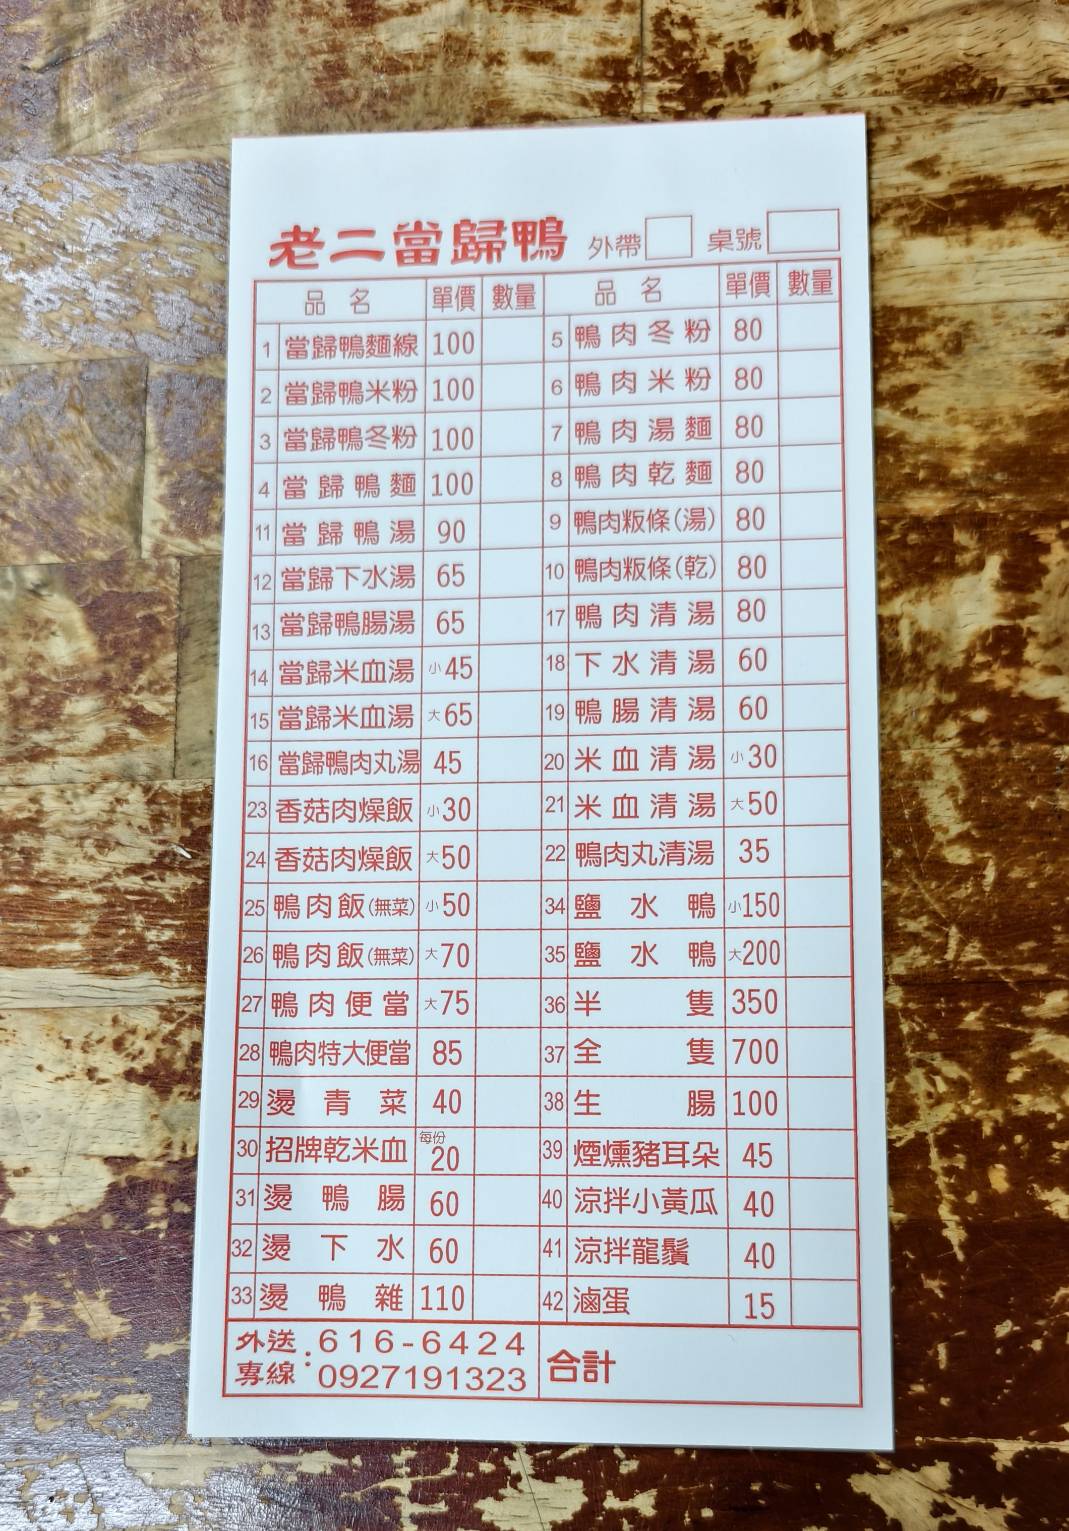 老二當歸鴨 外帶 桌號
品名 單價 數量 品名 單價 數量
1 當歸鴨麵線 100 5 鴨肉冬粉 80
2 當歸鴨米粉 100 6 鴨肉米粉 80
3 當歸鴨冬粉 100 7 鴨肉湯麵 80
4 當歸鴨麵 100 8 鴨肉乾麵 80
11 當歸鴨湯 90 9 鴨肉粄條(湯) 80
12 當歸下水湯 65 10 鴨肉粄條(乾) 80
13 當歸鴨腸湯 65 17 鴨肉清湯 80
14 當歸米血湯 小45 18 下水清湯 60
15 當歸米血湯 大65 19 鴨腸清湯 60
16 當歸鴨肉丸湯 45 20 米血清湯 小30
23 香菇肉燥飯 小30 21 米血清湯 大50
24 香菇肉燥飯 大50 22 鴨肉丸清湯 35
25 鴨肉飯(無菜) 小50 34 鹽水鴨 小150
26 鴨肉飯(無菜) 大70 35 鹽水鴨 大200
27 鴨肉便當 大75 36 半隻 350
28 鴨肉特大便當 85 37 全隻 700
29 燙青菜 40 38 生腸 100
30 招牌乾米血 每份20 39 煙燻豬耳朵 45
31 燙鴨腸 60 40 涼拌小黃瓜 40
32 燙下水 60 41 涼拌龍鬚 40
33 燙鴨雜 110 42 滷蛋 15
外送專線:616-6424 合計
0927191323